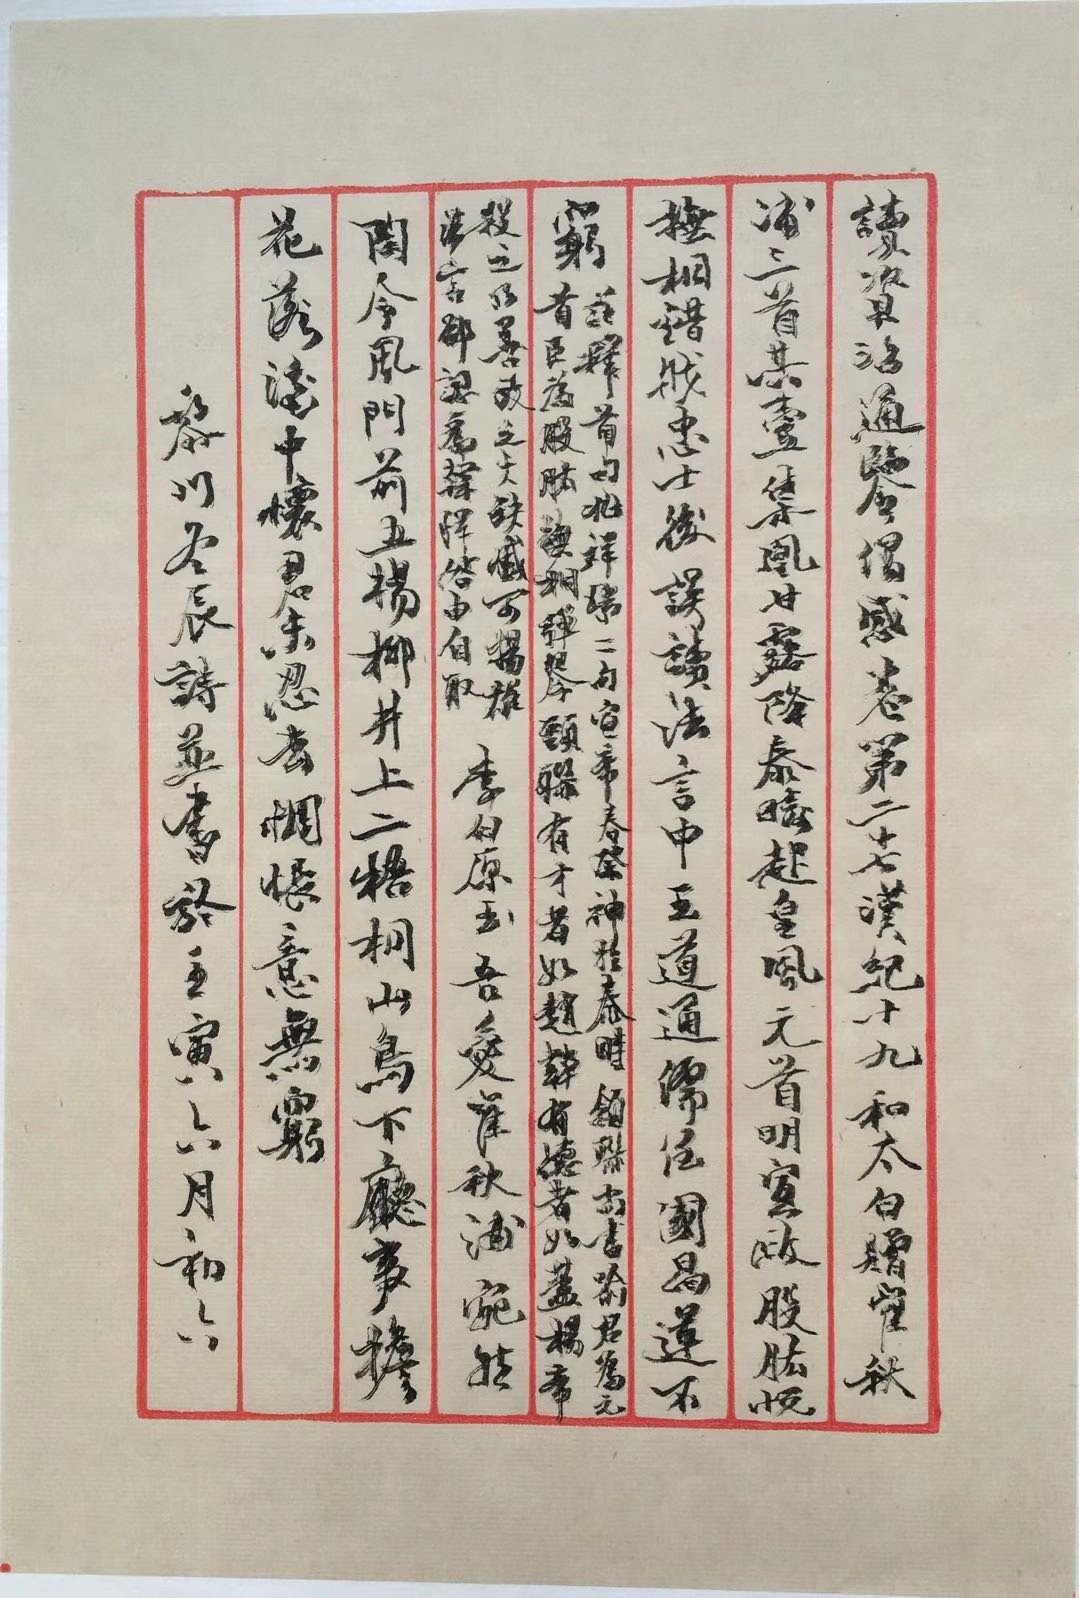 讀資治通鑒偶感卷第二十七漢紀十九和太白贈崔秋
浦三首其壹集鳳甘露降泰畤起皇風元首明宣政股肱悦
撫桐錯戕忠士後誤讀法言中王道通儒任國昌運不
窮
註釋首句北祥瑞二句宣帝春祭神於泰畤頷聯尚書喻君為元
首臣為股肱撫桐彈琴頸聯有才者如趙韓有德者如蓋楊帝
殺之乃善政之大缺憾可揚雄
法言却認為韓馮咎由自取
李白原玉吾愛崔秋浦宛然
陶令風門前五楊柳井上二梧桐山鳥下廳事檐
花落酒中懷君未忍去惆悵意無窮
黎川冬辰詩並書於壬寅六月初六